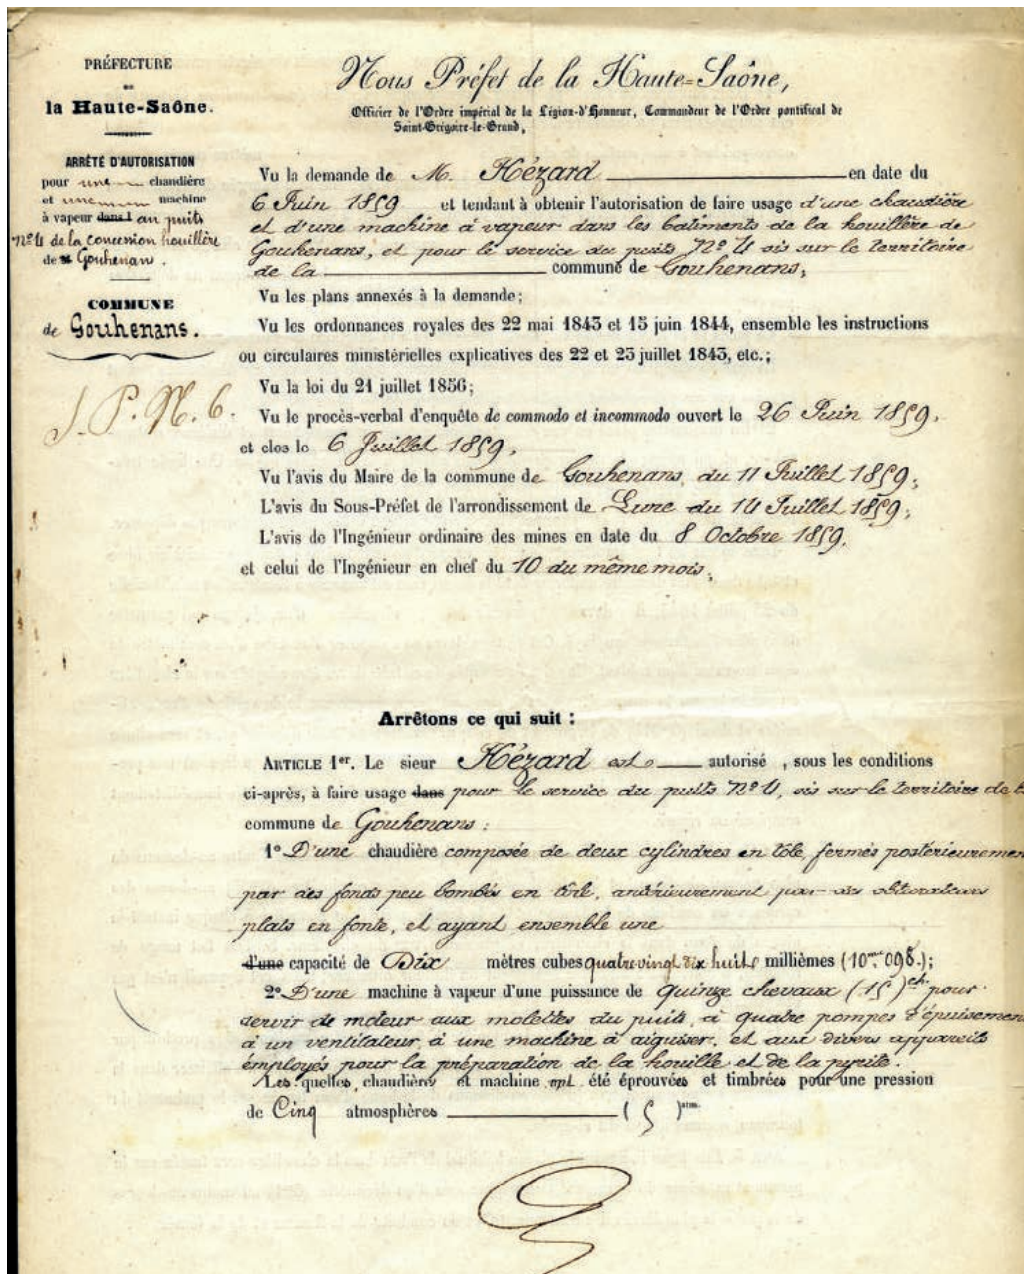 PRÉFECTURE
DE
la Haute-Saône.
ARRÊTÉ D'AUTORISATION
pour une chaudière
et une machine
à vapeur dans l au puits
N° 4 de la concession houillère
de Gouhenans.
COMMUNE
de Gouhenans.
J. P. N. 6.
Nous Préfet de la Haute-Saône,
Officier de l'Ordre impérial de la Légion-d'Honneur, Commandeur de l'Ordre pontifical de
Saint-Grégoire-le-Grand,
Vu la demande de M. Hézard en date du
6 Juin 1859 et tendant à obtenir l'autorisation de faire usage d'une chaudière
et d'une machine à vapeur dans les batiments de la houillère de
Gouhenans, et pour le service du puits N° 4 sis sur le territoire
de la commune de Gouhenans;
Vu les plans annexés à la demande;
Vu les ordonnances royales des 22 mai 1843 et 15 juin 1844, ensemble les instructions
ou circulaires ministérielles explicatives des 22 et 23 juillet 1843, etc.;
Vu la loi du 21 juillet 1856;
Vu le procès-verbal d'enquête de commodo et incommodo ouvert le 26 Juin 1859,
et clos le 6 Juillet 1859,
Vu l'avis du Maire de la commune de Gouhenans, du 11 Juillet 1859;
L'avis du Sous-Préfet de l'arrondissement de Lure du 14 Juillet 1859;
L'avis de l'Ingénieur ordinaire des mines en date du 8 Octobre 1859,
et celui de l'Ingénieur en chef du 10 du même mois;
Arrêtons ce qui suit :
ARTICLE 1er. Le sieur Hézard est autorisé, sous les conditions
ci-après, à faire usage dans pour le service du puits N° 4, sis sur le territoire de
commune de Gouhenans:
1° D'une chaudière composée de deux cylindres en tôle, fermés postérieurement
par des fonds peu bombés en tôle, antérieurement par des obturateurs
plats en fonte, et ayant ensemble une
d'une capacité de Dix mètres cubes quatre vingt dix huit millièmes (10m. 098.);
2° D'une machine à vapeur d'une puissance de quinze chevaux (15)ch. pour
servir de moteur aux molettes du puits, à quatre pompes d'épuisement
à un ventilateur, à une machine à aiguiser, et aux divers appareils
employés pour la préparation de la houille et de la pyrite.
Les quelles, chaudière et machine ont été éprouvées et timbrées pour une pression
de Cinq atmosphères (5)atm.